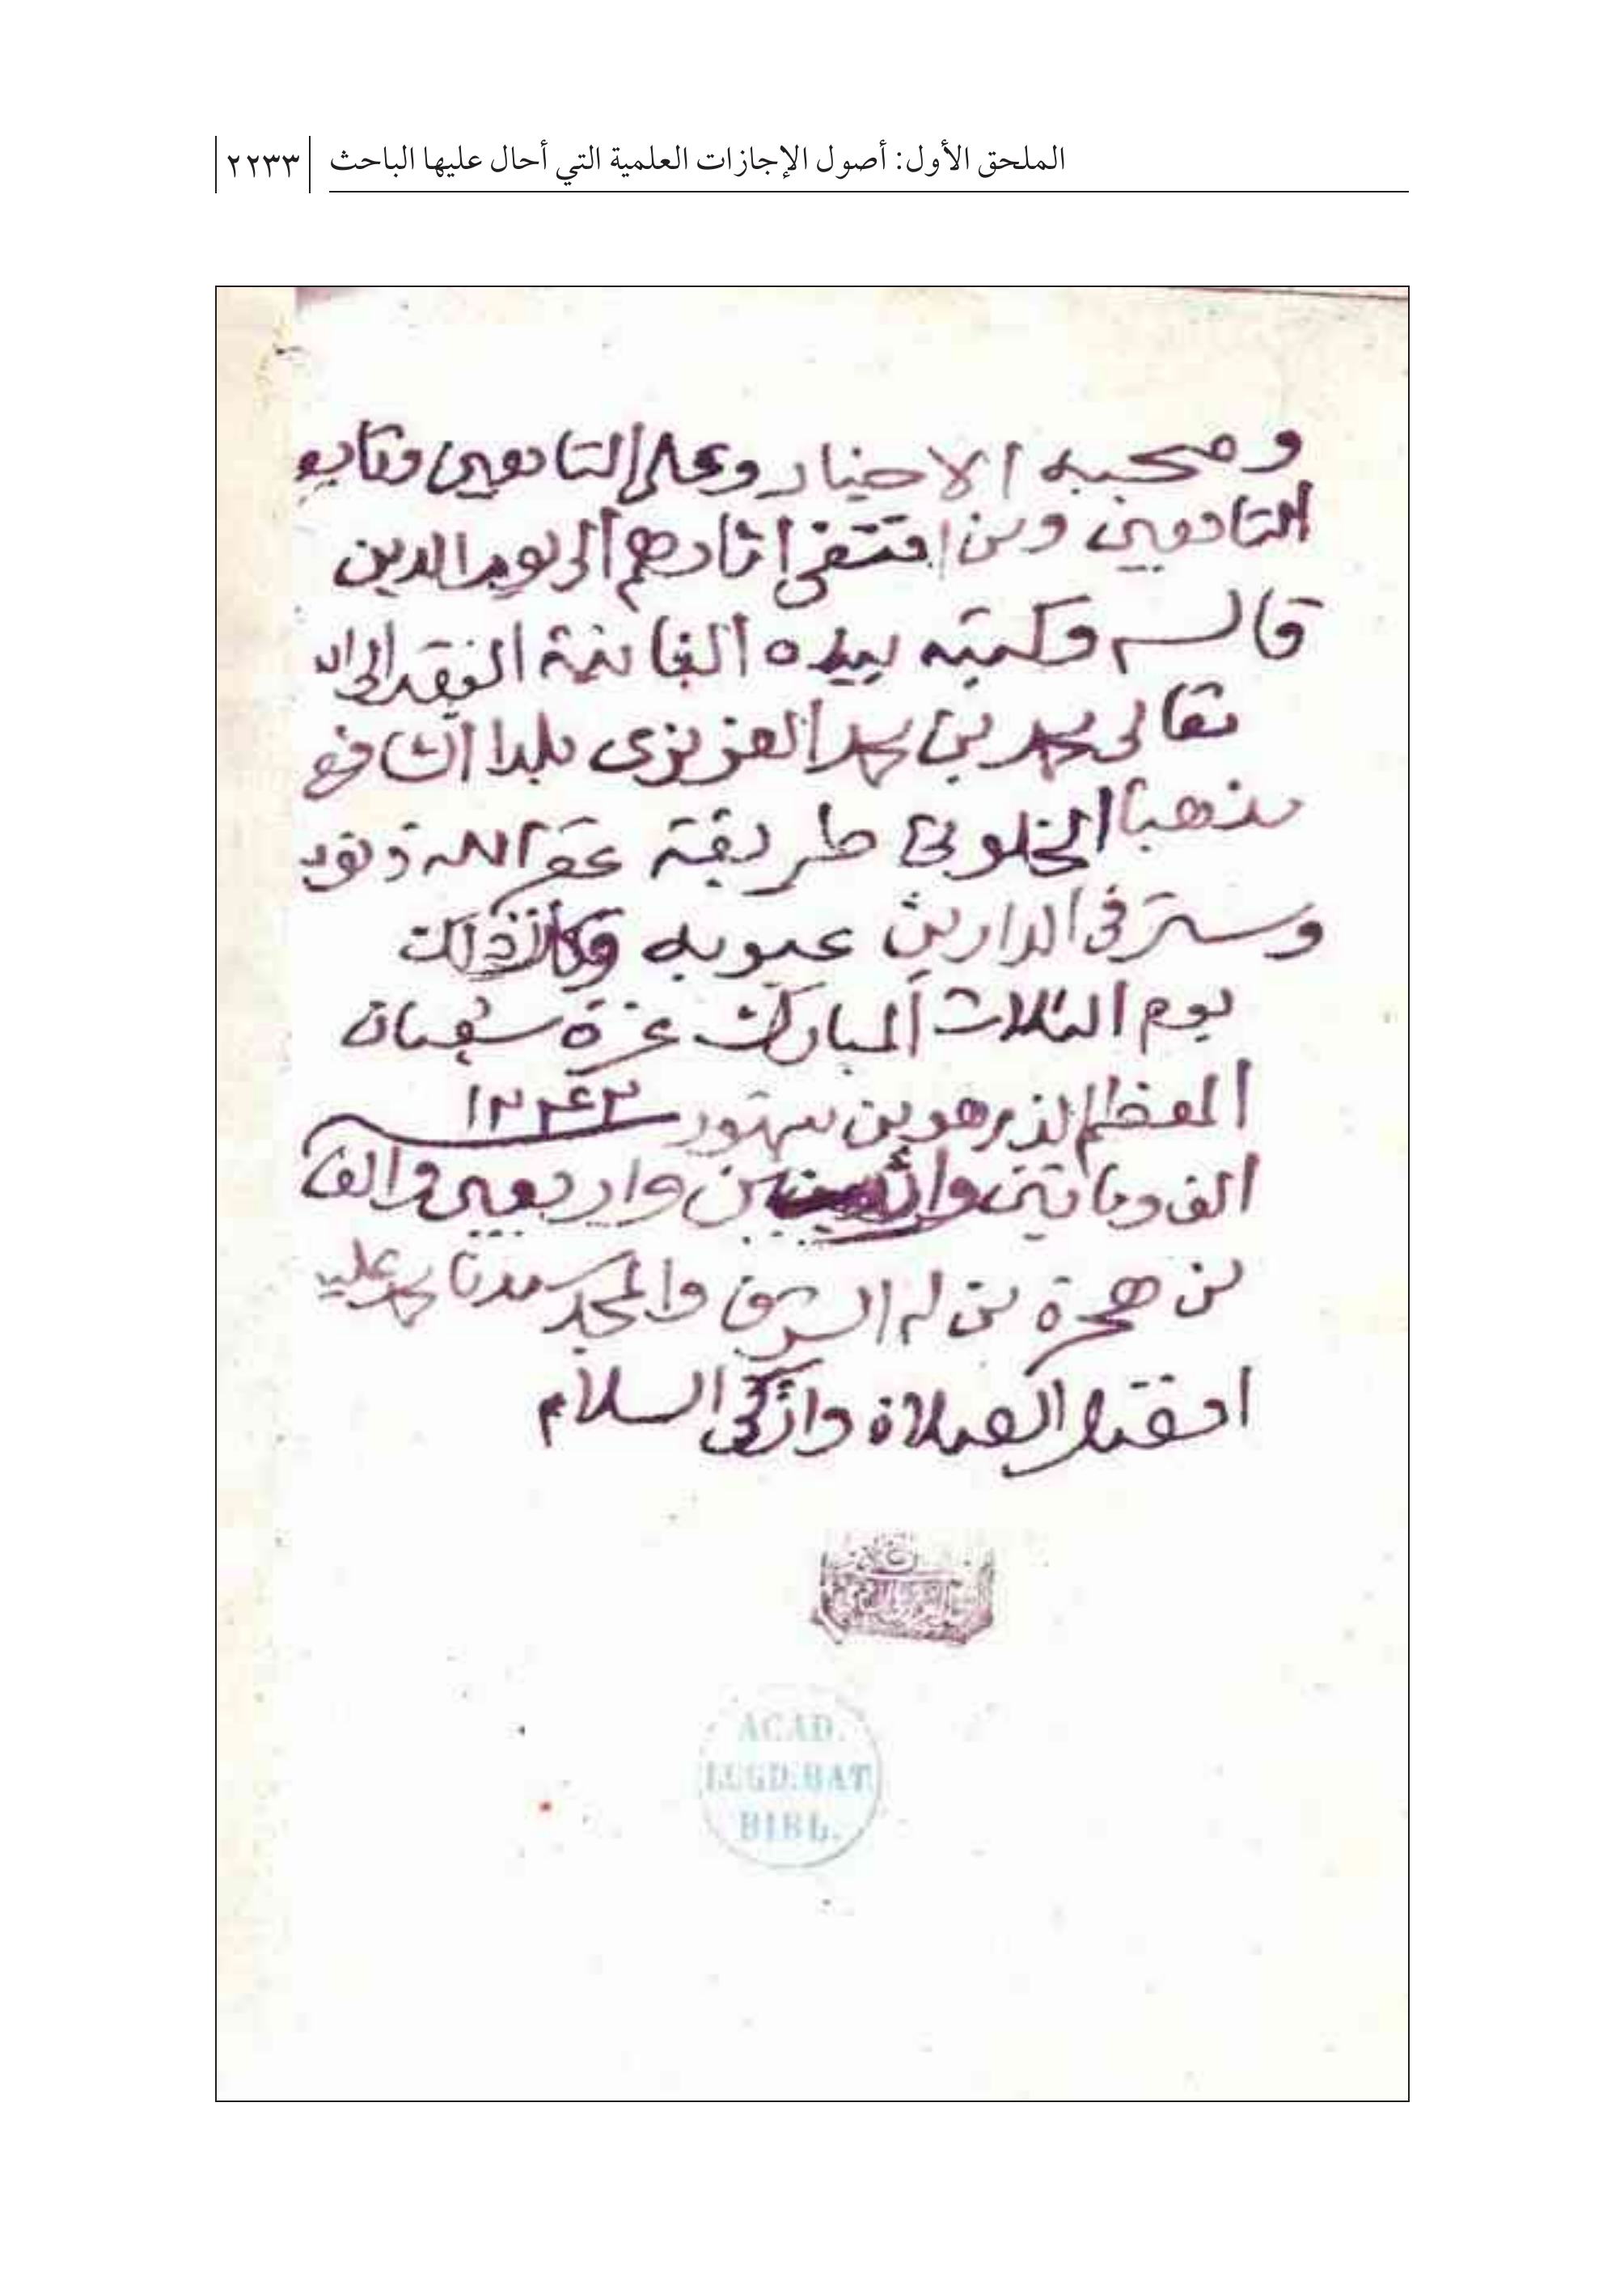 الملحق الأول: أصول الإجازات العلمية التي أحال عليها الباحث
٢٢٣٣
وصحبه الاخيار وعلى التابعين وتابع
التابعين ومن اقتفى اثارهم الى يوم الدين
قاله وكتبه بيده الفانية الفقير الى الله
تعالى محمد بن محمد العزيزى بلدا الشافعى
مذهبا الخلوتى طريقة غفر الله ذنوبه
وستر فى الدارين عيوبه وكان ذلك
يوم الثلاث المبارك غرة شعبان
المعظم الذى هو من شهور ١٢٤٢
الف ومائتين واثنين واربعين والف
من هجرة من له الشرف والمجد سيدنا محمد عليه
افضل الصلاة وازكى السلام
ACAD.
LUGD. BAT.
BIBL.